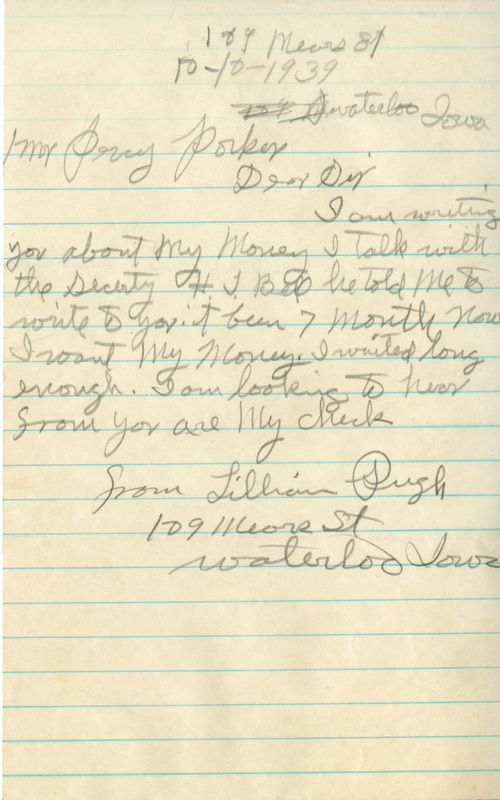 109 Mears St
10-10-1939
Waterloo Iowa
Mr Percy Parker
Dear Sir
I am writing
you about My Money I talk with
the Secerty H. J. Bell he told Me to
write to you. it been 7 Month Now
I want My Money. I waited long
enough. I am looking to hear
from you are My check
from Lillian Pugh
109 Mears St
Waterloo Iowa